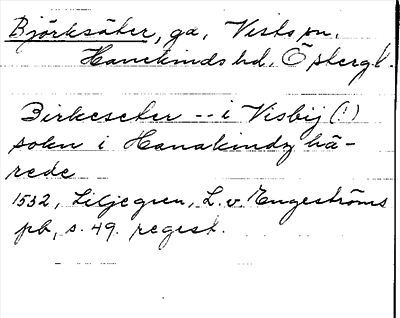 Björksäter, gd, Vists sn,
Hanekinds hd, Östergl.
Birkeseter -- i Visbij (!)
sokn i Hanakindz hä-
rede
1532, Liljegren, L. v. Engeströms
pb, s. 49. regest.